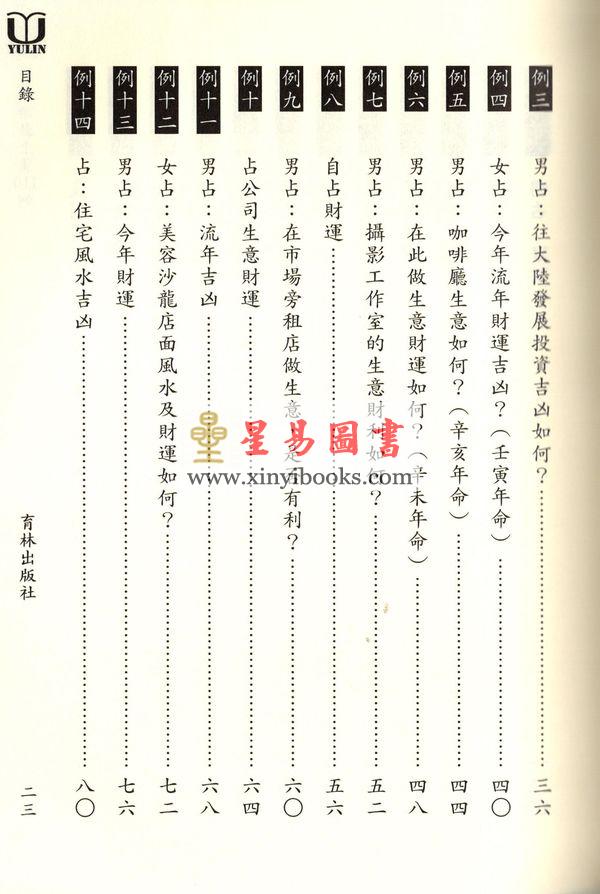 例三 男占：往大陸發展投資吉凶如何？……三六
例四 女占：今年流年財運吉凶？（壬寅年命）……四〇
例五 男占：咖啡廳生意如何？（辛亥年命）……四四
例六 男占：在此做生意財運如何？（辛未年命）……四八
例七 男占：攝影工作室的生意財利如何？……五二
例八 自占財運……五六
例九 男占：在市場旁租店做生意，是否有利？……六〇
例十 占公司生意財運……六四
例十一 男占：流年吉凶……六八
例十二 女占：美容沙龍店面風水及財運如何？……七二
例十三 男占：今年財運……七六
例十四 占：住宅風水吉凶……八〇
YULIN
目錄
育林出版社
二三
星易圖書
www.xinyibooks.com